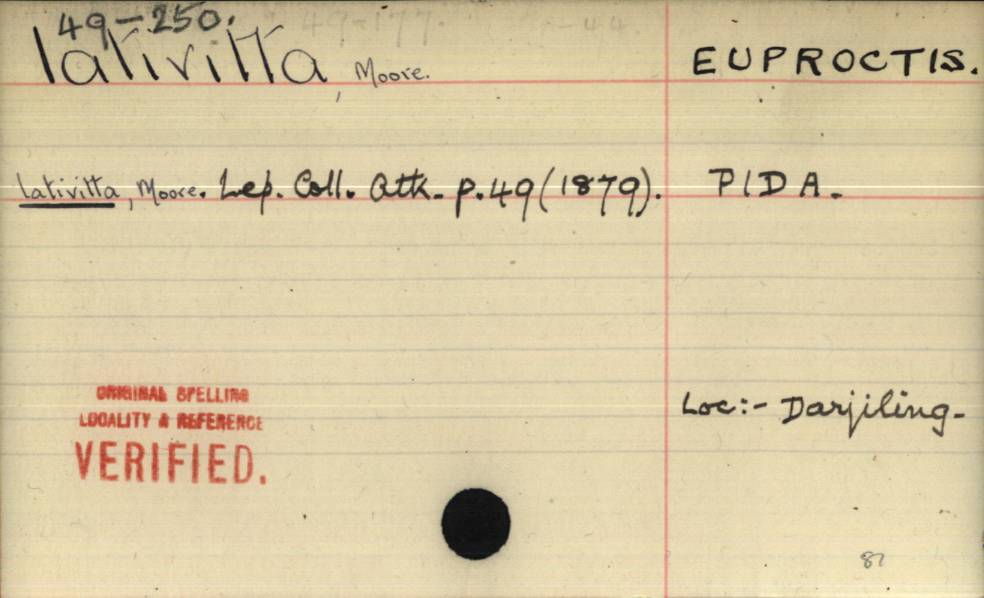 49-250. 49-177. -44.
lativitta, Moore. EUPROCTIS.
lativitta, Moore. Lep. Coll. Atk. p.49 (1879). PIDA.
Loc:- Darjiling-
ORIGINAL SPELLING
LOCALITY & REFERENCE
VERIFIED.